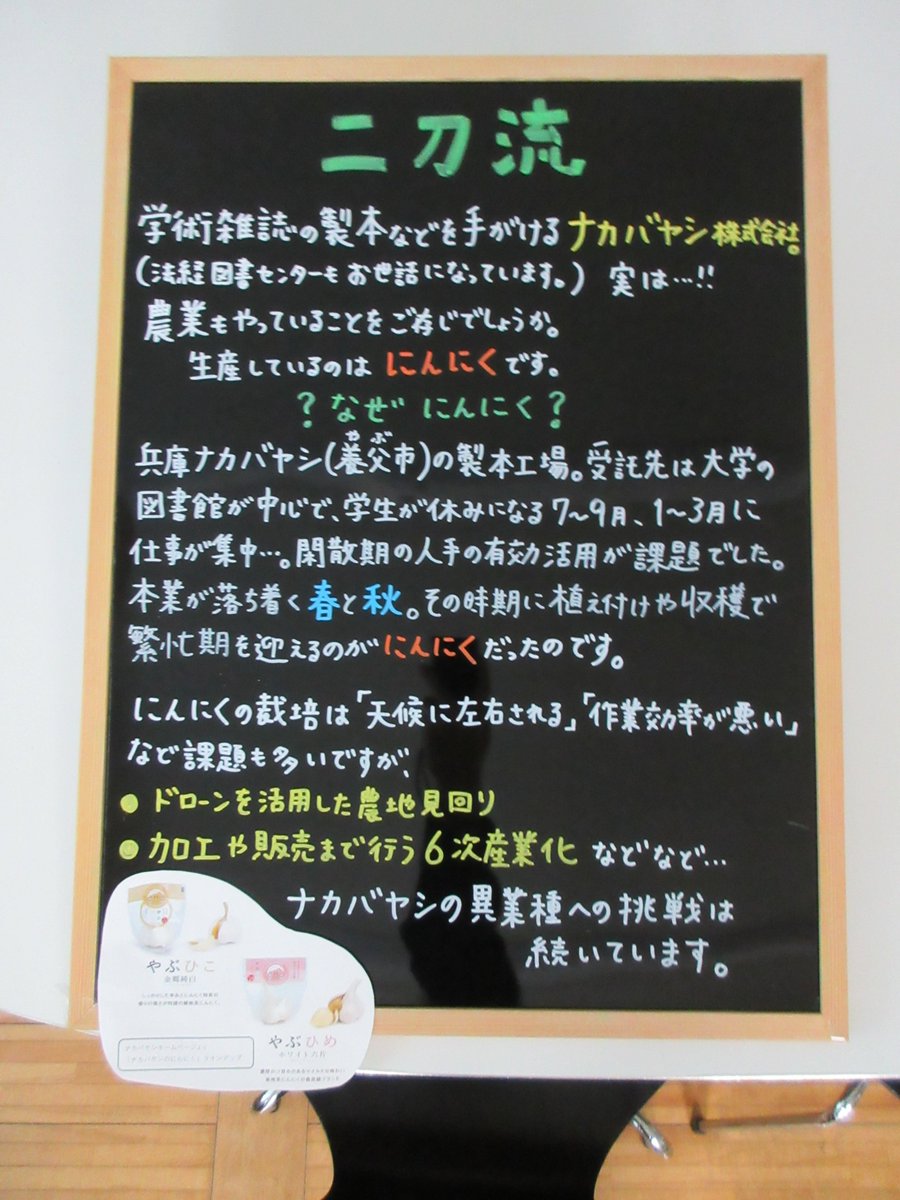 二刀流
学術雑誌の製本などを手がけるナカバヤシ株式会社。
(法経図書センターもお世話になっています。) 実は…!!
農業もやっていることをご存じでしょうか。
生産しているのは にんにくです。
?なぜ にんにく?
兵庫ナカバヤシ(養父市)の製本工場。受託先は大学の
やぶ
図書館が中心で、学生が休みになる7~9月、1~3月に
仕事が集中…。閑散期の人手の有効活用が課題でした。
本業が落ち着く春と秋。その時期に植え付けや収穫で
繁忙期を迎えるのがにんにくだったのです。
にんにくの栽培は「天候に左右される」「作業効率が悪い」
など課題も多いですが、
● ドローンを活用した農地見回り
● 加工や販売まで行う6次産業化 などなど…
ナカバヤシの異業種への挑戦は
続いています。
やぶひこ
金郷純白
やぶひめ
ホワイト六片
ナカバヤシホームページより